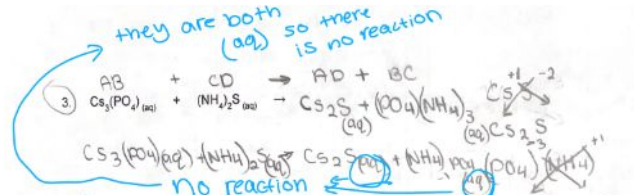 they are both
(aq) so there
is no reaction
AB + CD → AD + BC
3. Cs3(PO4)(aq) + (NH4)2S(aq) → Cs2S(aq) + (PO4)(NH4)3(aq)
Cs+1 S-2
Cs2S
Cs3(PO4)(aq) + (NH4)2S(aq) → Cs2S(aq) + (NH4) PO4(aq)
(PO4)-3 (NH4)+1
No reaction